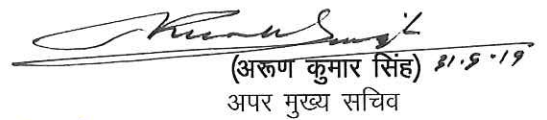 (अरूण कुमार सिंह) 31.5.19
अपर मुख्य सचिव